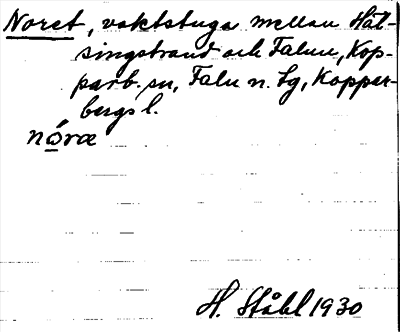 Noret, vaktstuga mellan Häl-
singstrand och Falun, Kop-
parb. sn, Falu n. tg, Kopper-
bergs l.
nóræ
H. Ståhl 1930